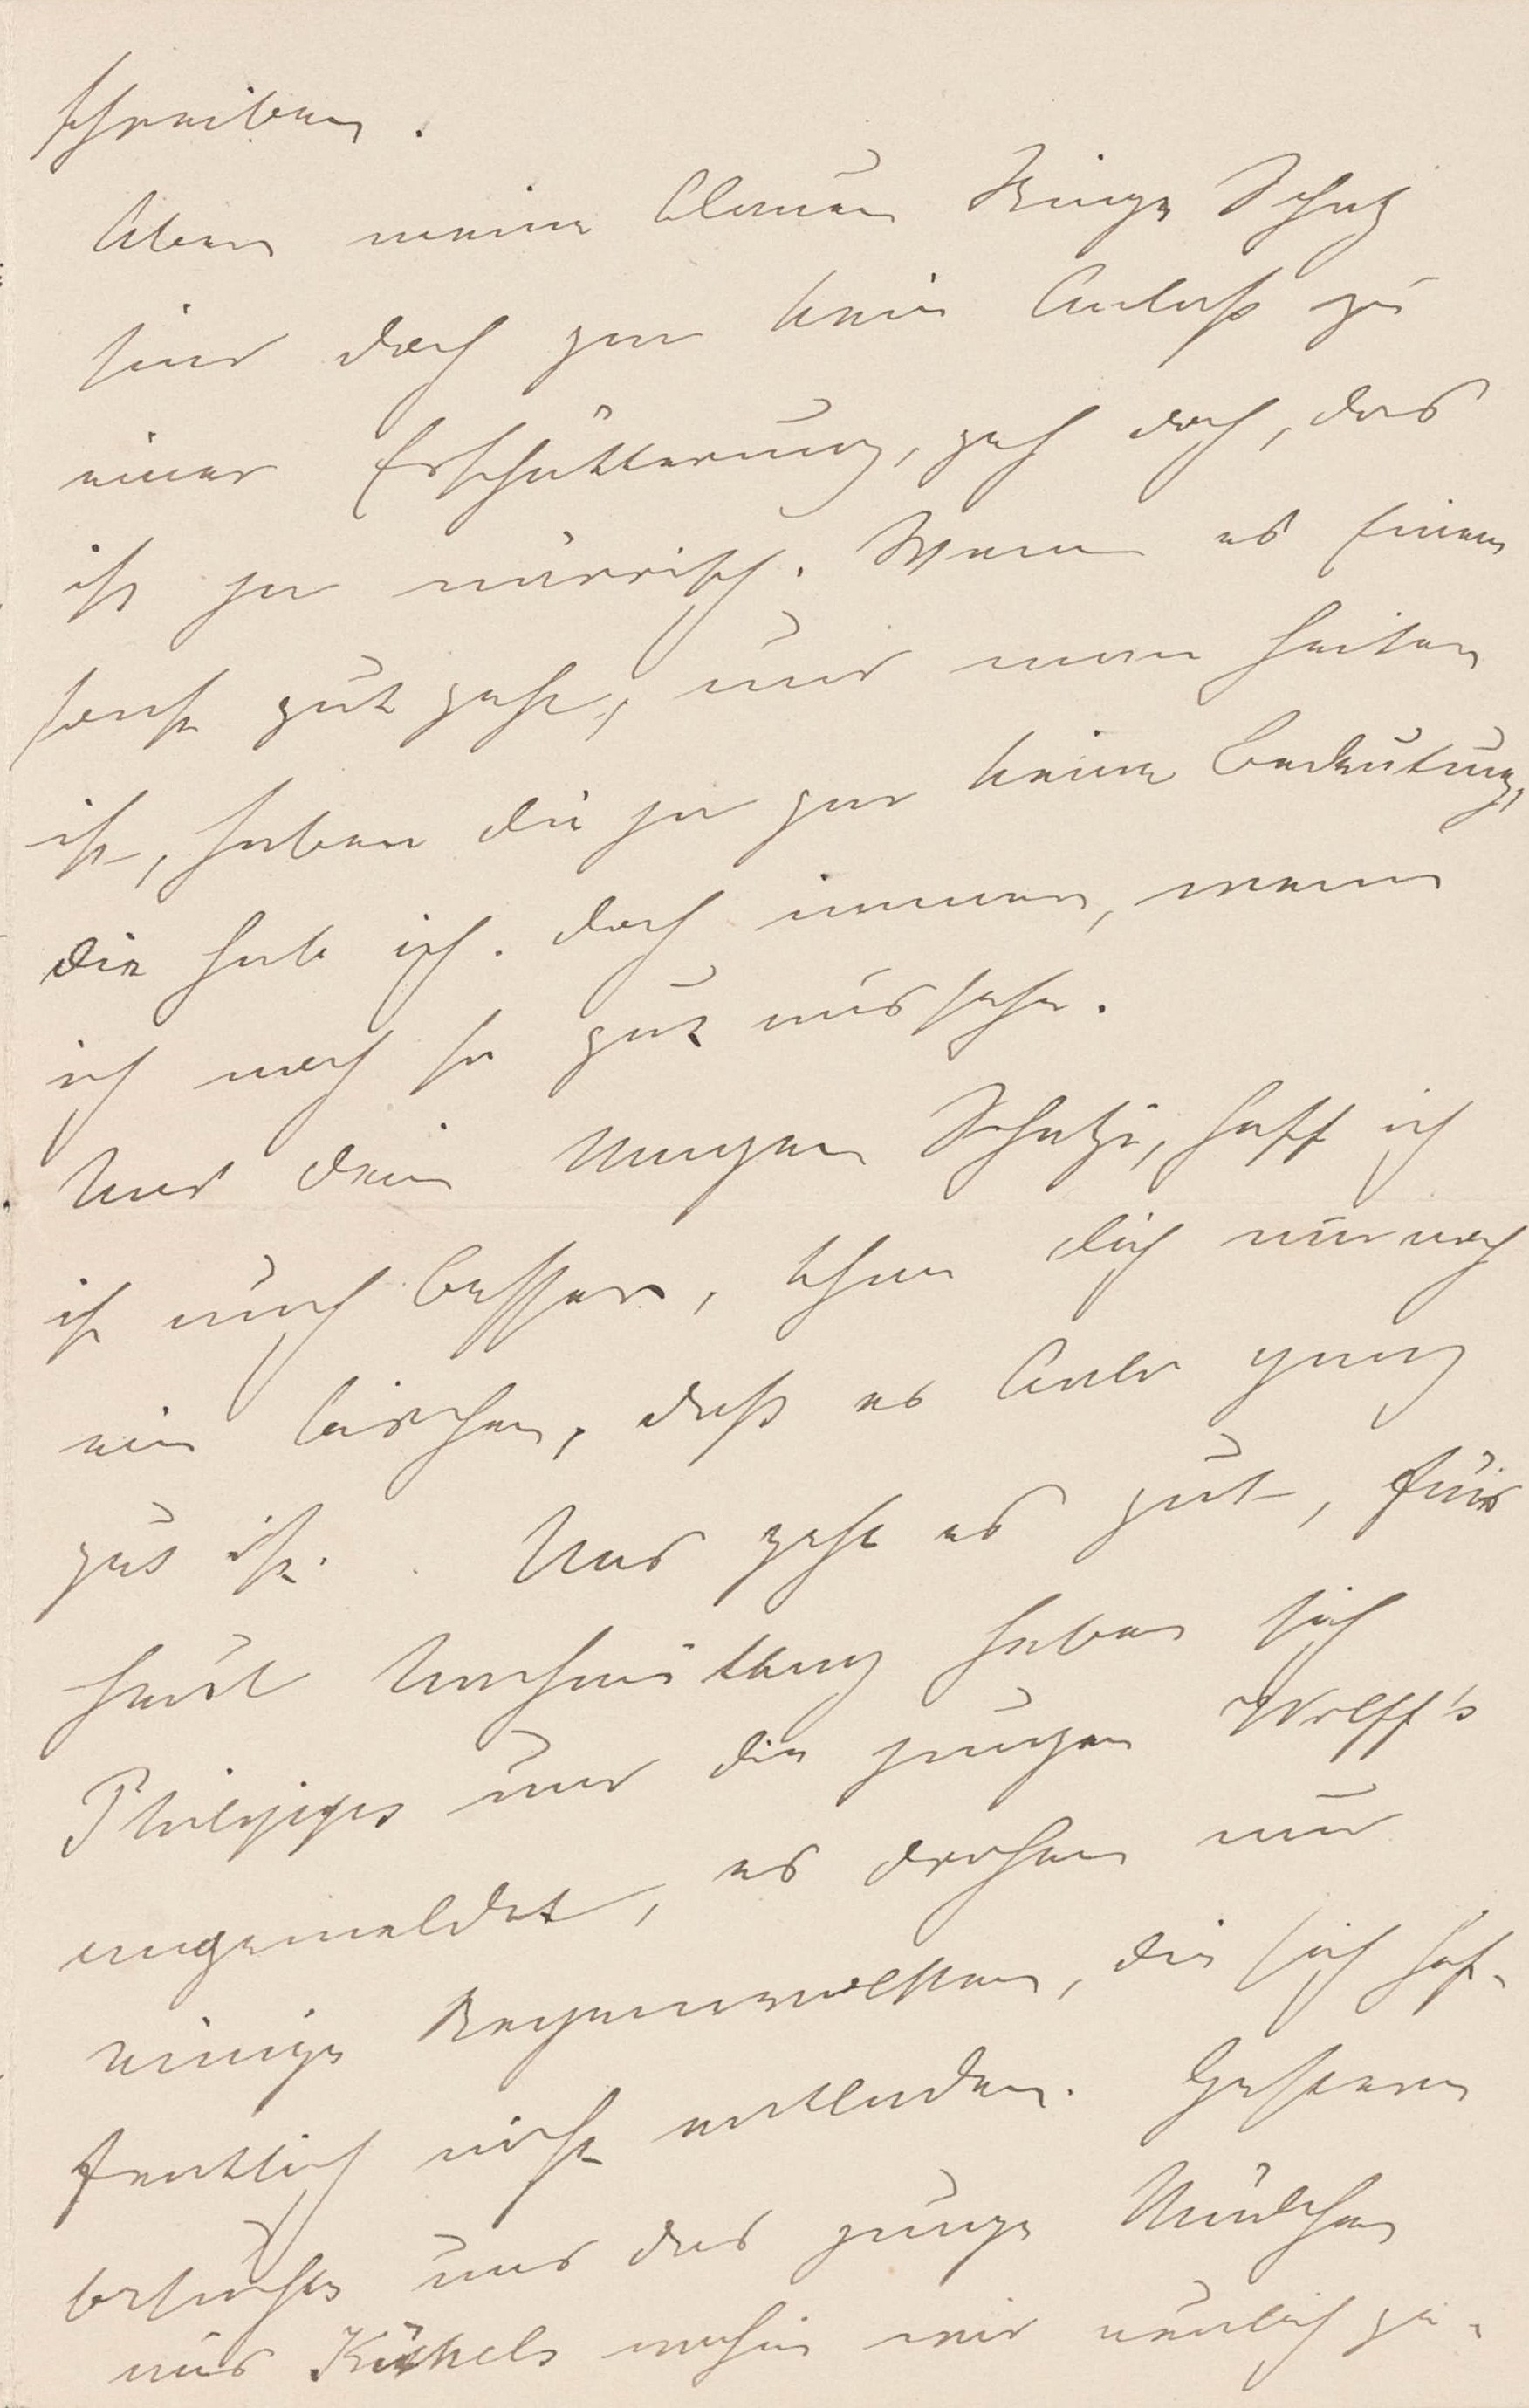 schreiben.
Aber meine blauen Ringe Schatz
sind doch gar kein Anlaß zu
einer Erschütterung, geh doch, das
ist ja närrisch. Wenn es Einem
sonst gut geht, und man heiter
ist, haben die ja gar keine Bedeutung,
die hab ich doch immer, wenn
ich noch so gut aussehe.
Und dein Magen Schatzi, hoff ich
ist auch besser, schon dich nur noch
ein bischen, daß es bald ganz
gut ist. Uns geht es gut, für
heut Nachmittag haben sich
Philipps und die jungen Wolff's
angemeldet, es drohen nur
einige Regenwolken, die sich hof-
fentlich nicht entladen. Gestern
besuchte uns das junge Mädchen
aus Küchels wohin wir neulich ge-